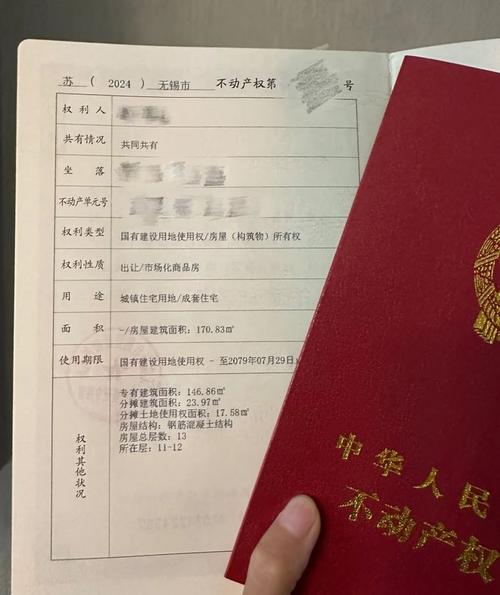 苏 ( 2024 ) 无锡市 不动产权第 号
权利人
共有情况 共同共有
坐落
不动产单元号
权利类型 国有建设用地使用权/房屋（构筑物）所有权
权利性质 出让/市场化商品房
用途 城镇住宅用地/成套住宅
面积 -/房屋建筑面积：170.83㎡
使用期限 国有建设用地使用权 - 至2079年07月29日
权利其他状况
专有建筑面积：146.86㎡
分摊建筑面积：23.97㎡
分摊土地使用权面积：17.58㎡
房屋结构：钢筋混凝土结构
房屋总层数：13
所在层：11-12
中华人民
不动产权